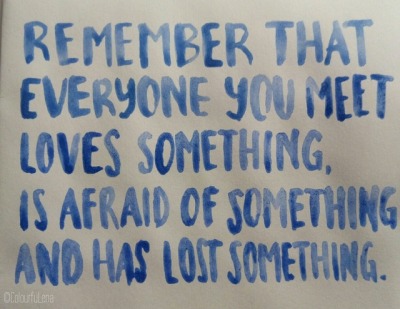 REMEMBER THAT
EVERYONE YOU MEET
LOVES SOMETHING,
IS AFRAID OF SOMETHING
AND HAS LOST SOMETHING.
©ColourfuLena